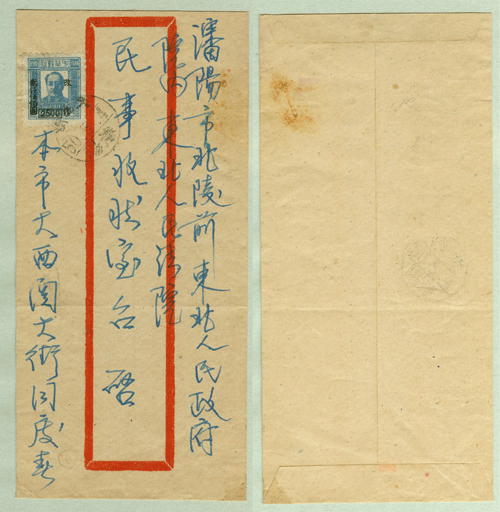 瀋陽市北陵前東北人民政府
院内東北人民法院
民事收狀室台啓
本市大西関大街同慶春